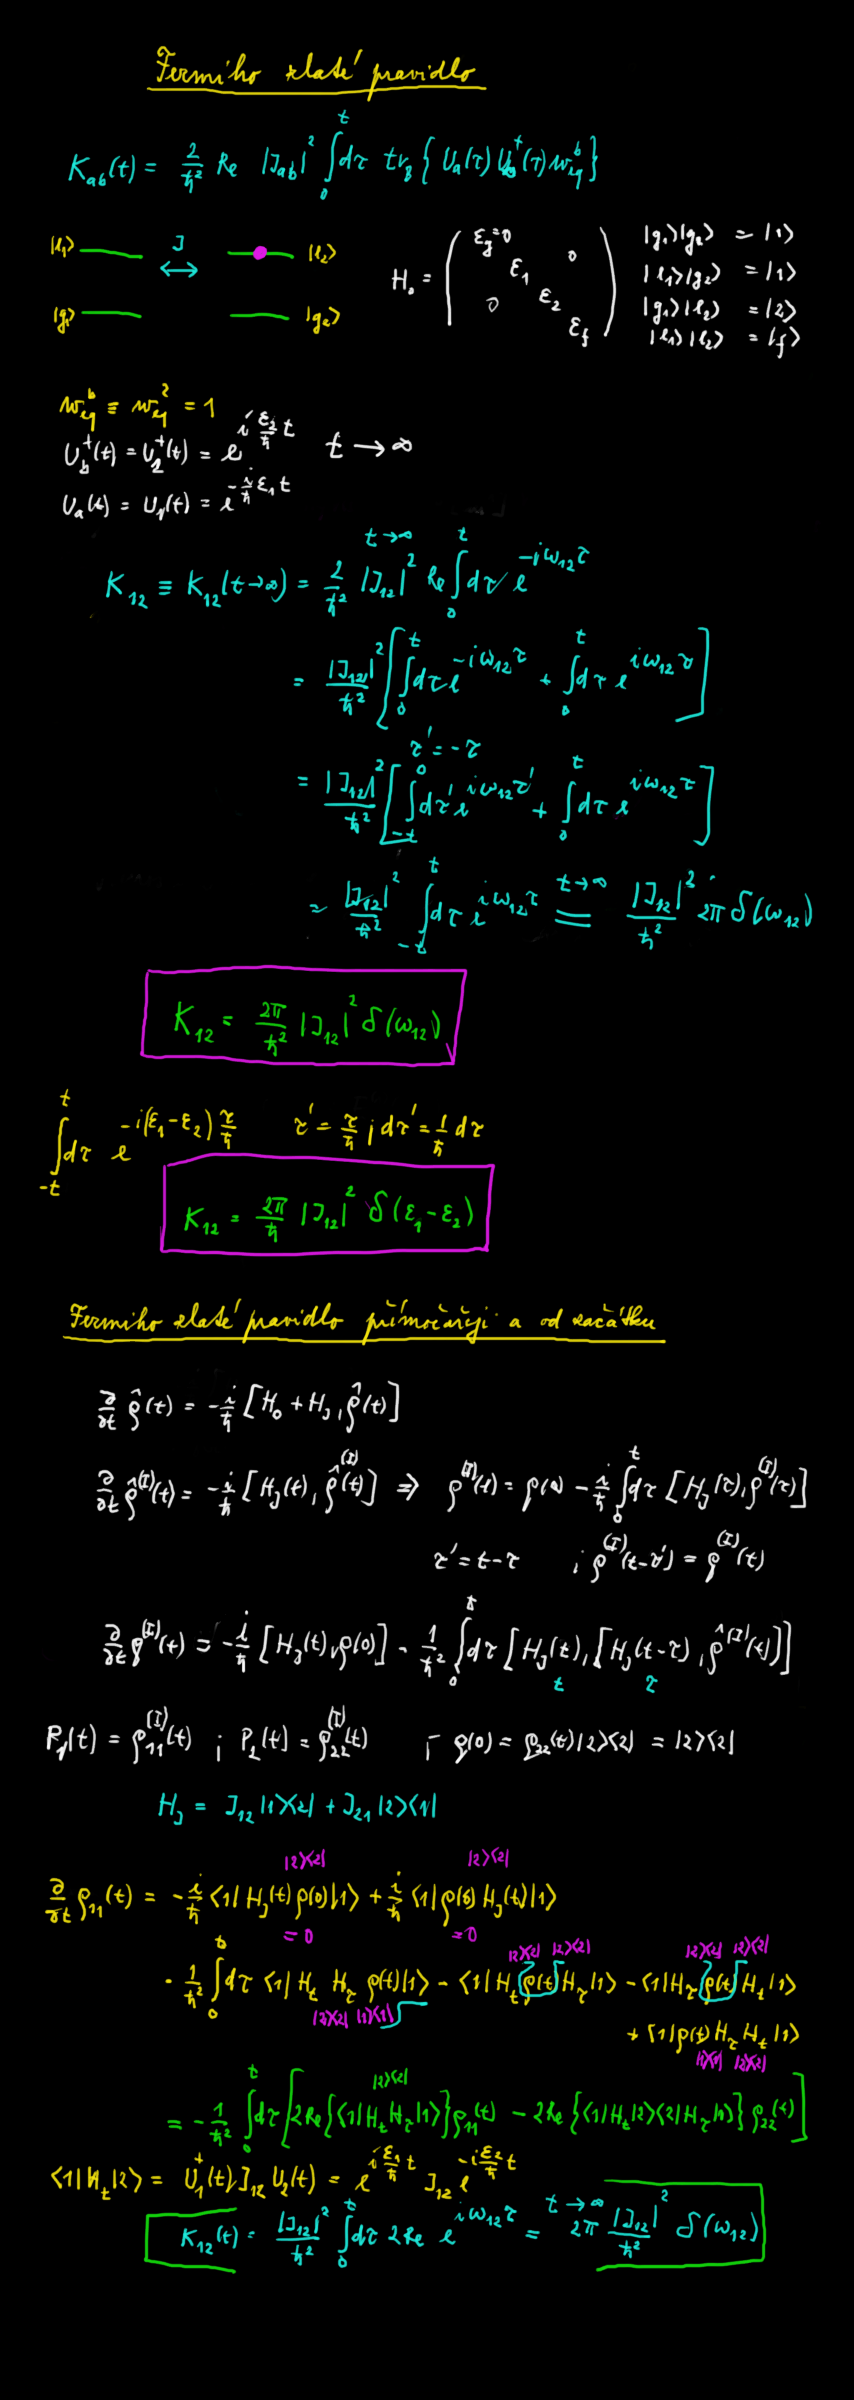 Fermiho zlaté pravidlo
K_ab(t) = 2/ħ² Re |J_ab|² ∫₀ᵗ dτ tr_B { U_a(τ) U_b⁺(τ) w_eq^b }
|e₁> J ↔ |e₂>
|g₁> |g₂>
H₀ = ( ε_g=0 ε₁ ε₂ ε_f 0 0 )
|g₁>|g₂> = |1>
|e₁>|g₂> = |1>
|g₁>|e₂> = |2>
|e₁>|e₂> = |f>
w_eq^b ≡ w_eq^2 = 1
U_b⁺(t) = U₂⁺(t) = e^{i ε₂/ħ t} t → ∞
U_a(t) = U₁(t) = e^{-i/ħ ε₁ t}
K₁₂ ≡ K₁₂(t→∞) = 2/ħ² |J₁₂|² Re ∫₀ᵗ dτ e^{-iω₁₂τ} t→∞
= |J₁₂|²/ħ² [ ∫₀ᵗ dτ e^{-iω₁₂τ} + ∫₀ᵗ dτ e^{iω₁₂τ} ]
τ' = -τ
= |J₁₂|²/ħ² [ ∫_{-t}^0 dτ' e^{iω₁₂τ'} + ∫₀ᵗ dτ e^{iω₁₂τ} ]
= |J₁₂|²/ħ² ∫_{-t}^t dτ e^{iω₁₂τ} =^{t→∞} |J₁₂|²/ħ² 2π δ(ω₁₂)
K₁₂ = 2π/ħ² |J₁₂|² δ(ω₁₂)
∫_{-t}^t dτ e^{-i(ε₁-ε₂) τ/ħ} τ' = τ/ħ ; dτ' = 1/ħ dτ
K₁₂ = 2π/ħ |J₁₂|² δ(ε₁-ε₂)
Fermiho zlaté pravidlo přímočařeji a od začátku
∂/∂t ρ̂(t) = -i/ħ [H₀ + H_J, ρ̂(t)]
∂/∂t ρ̂^(I)(t) = -i/ħ [H_J(t), ρ̂^(I)(t)] ⇒ ρ^(I)(t) = ρ(0) - i/ħ ∫₀ᵗ dτ [H_J(τ), ρ^(I)(τ)]
τ' = t-τ ; ρ^(I)(t-τ') = ρ^(I)(t)
∂/∂t ρ^(I)(t) = -i/ħ [H_J(t), ρ(0)] - 1/ħ² ∫₀ᵗ dτ [H_J(t), [H_J(t-τ), ρ̂^(I)(t)]]
t τ
P₁(t) = ρ₁₁^(I)(t) ; P₂(t) = ρ₂₂^(I)(t) ; ρ(0) = ρ₂₂(t)|2><2| = |2><2|
H_J = J₁₂|1><2| + J₂₁|2><1|
|2><2| |2><2|
∂/∂t ρ₁₁(t) = -i/ħ <1|H_J(t) ρ(0)|1> + i/ħ <1|ρ(0) H_J(t)|1>
= 0 = 0
|2><2| |2><2| |2><2| |2><2|
- 1/ħ² ∫₀ᵗ dτ <1|H_t H_τ ρ(t)|1> - <1|H_t ρ(t) H_τ|1> - <1|H_τ ρ(t) H_t|1>
|2><2| |1><1|
+ <1|ρ(t) H_τ H_t|1>
|1><1| |2><2|
|2><2|
= -1/ħ² ∫₀ᵗ dτ [ 2Re{<1|H_t H_τ|1>} ρ₁₁(t) - 2Re{<1|H_t|2><2|H_τ|1>} ρ₂₂(t) ]
<1|H_t|2> = U₁⁺(t) J₁₂ U₂(t) = e^{i ε₁/ħ t} J₁₂ e^{-i ε₂/ħ t}
K₁₂(t) = |J₁₂|²/ħ² ∫₀ᵗ dτ 2Re e^{iω₁₂τ} =^{t→∞} 2π |J₁₂|²/ħ² δ(ω₁₂)